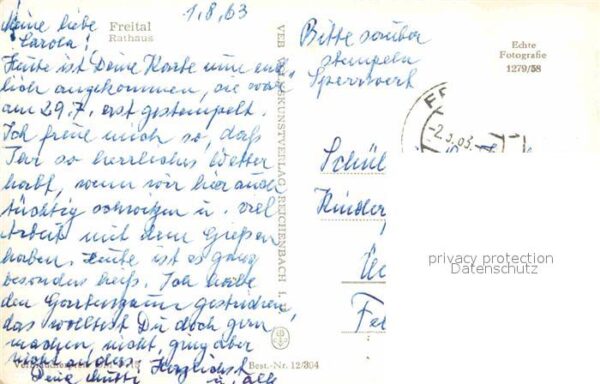 1.8.63
Freital
Rathaus
Meine liebe
Carola!
Heute ist Deine Karte nun end-
lich angekommen, sie war
am 29.7. erst gestempelt.
Ich freue mich so, daß
Ihr so herrliches Wetter
habt, wenn wir hier auch
tüchtig schwitzen u. viel
Arbeit mit dem Gießen
haben. Heute ist es ganz
besonders heiß. Ich habe
den Gartenzaun gestrichen,
das wolltest Du doch gern
machen, nicht, ging aber
nicht anders. Herzlichst
Deine Mutti u. alle
VEB BILD UND KUNSTVERLAG REICHENBACH i.
Best.-Nr. 12/304
Bitte sauber
stempeln
Sperrwert
Echte
Fotografie
1279/58
Schül
Kinder
privacy protection
Datenschutz